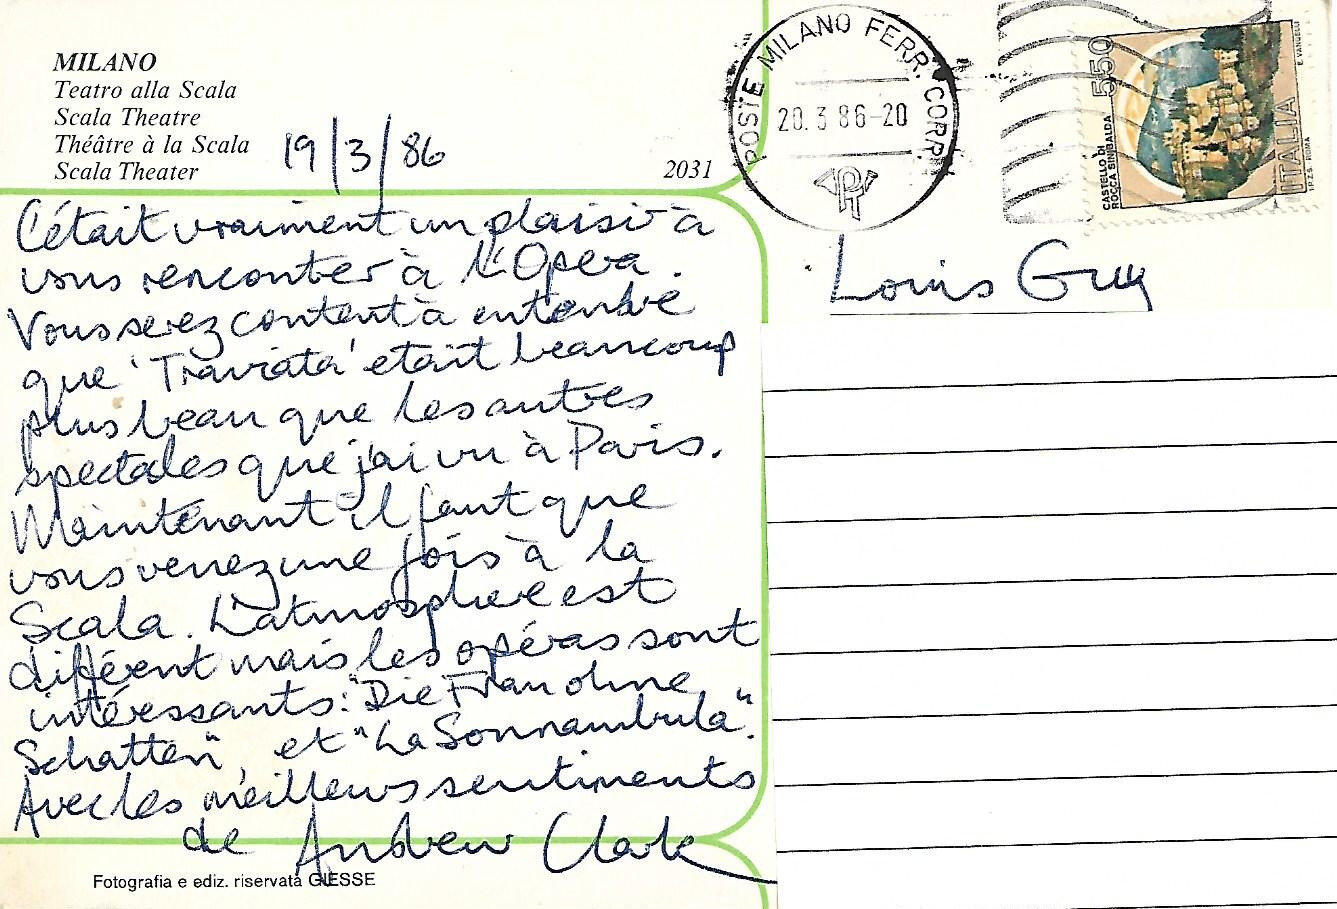 MILANO
Teatro alla Scala
Scala Theatre
Théâtre à la Scala
Scala Theater
19/3/86
2031
POSTE MILANO FERR. CORR.
20.3 86-20
550
CASTELLO DI
ROCCA SINIBALDA
ITALIA
E. VANGELLI
I.P.Z.S. ROMA
Louis Guy
C'était vraiment un plaisir à
vous rencontrer à l'Opera.
Vous serez content à entendre
que 'Traviata' etait beaucoup
plus beau que les autres
spectales que j'ai vu à Paris.
Maintenant il faut que
vous venez une fois à la
Scala. L'atmosphere est
différent mais les opéras sont
intéressants: "Die Frau ohne
Schatten", et "La Sonnambula".
Avec les meilleurs sentiments
de Andrew Clark
Fotografia e ediz. riservata GIESSE